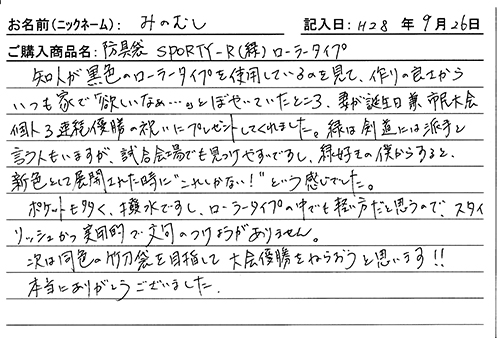 お名前(ニックネーム): みのむし 記入日: H28 年 9月26日
ご購入商品名: 防具袋 SPORTY-R(緑) ローラータイプ
知人が黒色のローラータイプを使用しているのを見て、作りの良さから
いつも家で"欲しいなぁ…"とぼやいていたところ、妻が誕生日兼市民大会
個人3連続優勝の祝いにプレゼントしてくれました。緑は剣道には派手と
言う人もいますが、試合会場でも見つけやすいですし、緑好きの僕からすると、
新色として展開された時に"これしかない!"という感じでした。
ポケットも多く、撥水ですし、ローラータイプの中でも軽い方だと思うので、スタイ
リッシュかつ実用的で文句のつけようがありません。
次は同色の竹刀袋を目指して大会優勝をねらおうと思います!!
本当にありがとうございました.